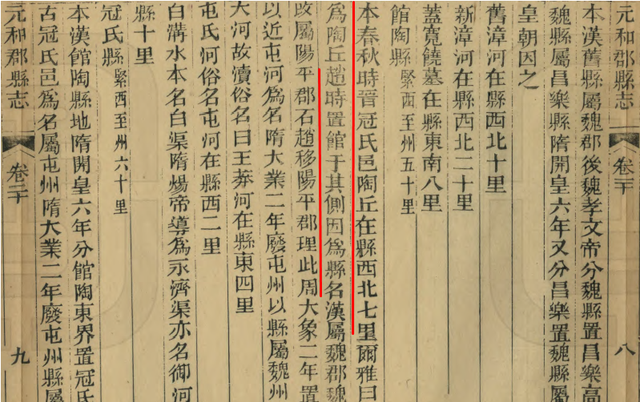 元和郡縣志 卷二十 八
本漢舊縣屬魏郡後魏孝文帝分魏縣置昌樂高
魏縣屬昌樂縣隋開皇六年又分昌樂置魏縣屬
皇朝因之
舊漳河在縣西北十里
新漳河在縣西北二十里
蓋寬饒墓在縣東南八里
館陶縣 緊西至州五十里
本春秋時晉冠氏邑陶丘在縣西北七里爾雅曰
為陶丘趙時置館于其側因為縣名漢屬魏郡魏
改屬陽平郡石趙移陽平郡理此周大象二年置
以近屯河為名隋大業二年廢屯州以縣屬魏州
大河故瀆俗名曰王莽河在縣東四里
屯氏河俗名屯河在縣西二里
白溝水本名白渠隋煬帝導為永濟渠亦名御河
縣十里
冠氏縣 緊西至州六十里
本漢館陶縣地隋開皇六年分館陶東界置冠氏
古冠氏邑為名屬屯州隋大業二年廢屯州縣屬
元和郡縣志 卷二十 九